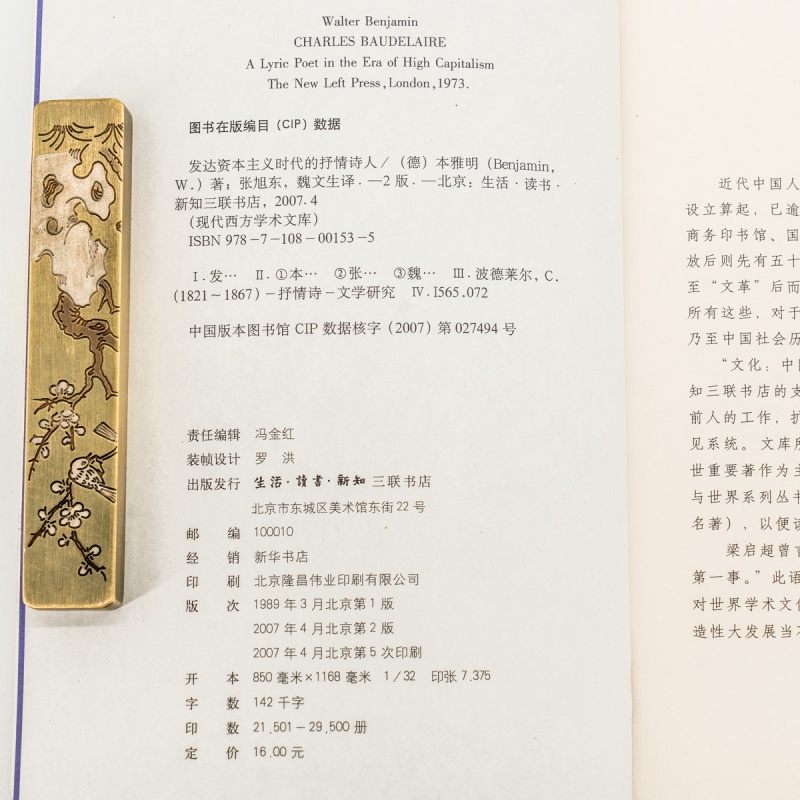 Walter Benjamin
CHARLES BAUDELAIRE
A Lyric Poet in the Era of High Capitalism
The New Left Press, London, 1973.
图书在版编目（CIP）数据
发达资本主义时代的抒情诗人/（德）本雅明（Benjamin,
W.）著；张旭东，魏文生译．—2 版．—北京：生活·读书·
新知三联书店，2007.4
（现代西方学术文库）
ISBN 978-7-108-00153-5
Ⅰ.发… Ⅱ.①本… ②张… ③魏… Ⅲ.波德莱尔，C.
(1821～1867)-抒情诗-文学研究 Ⅳ.I565.072
中国版本图书馆 CIP 数据核字（2007）第 027494 号
责任编辑 冯金红
装帧设计 罗 洪
出版发行 生活·讀書·新知 三联书店
北京市东城区美术馆东街 22 号
邮 编 100010
经 销 新华书店
印 刷 北京隆昌伟业印刷有限公司
版 次 1989 年 3 月北京第 1 版
2007 年 4 月北京第 2 版
2007 年 4 月北京第 5 次印刷
开 本 850 毫米×1168 毫米 1/32 印张 7.375
字 数 142 千字
印 数 21,501－29,500 册
定 价 16.00 元
近代中国人
设立算起，已逾
商务印书馆、国
放后则先有五十
至“文革”后而
所有这些，对于
乃至中国社会历
“文化：中国
知三联书店的支
前人的工作，扩
见系统。文库所
世重要著作为主
与世界系列丛书
名著），以便读
梁启超曾言
第一事。”此语
对世界学术文化
造性大发展当不